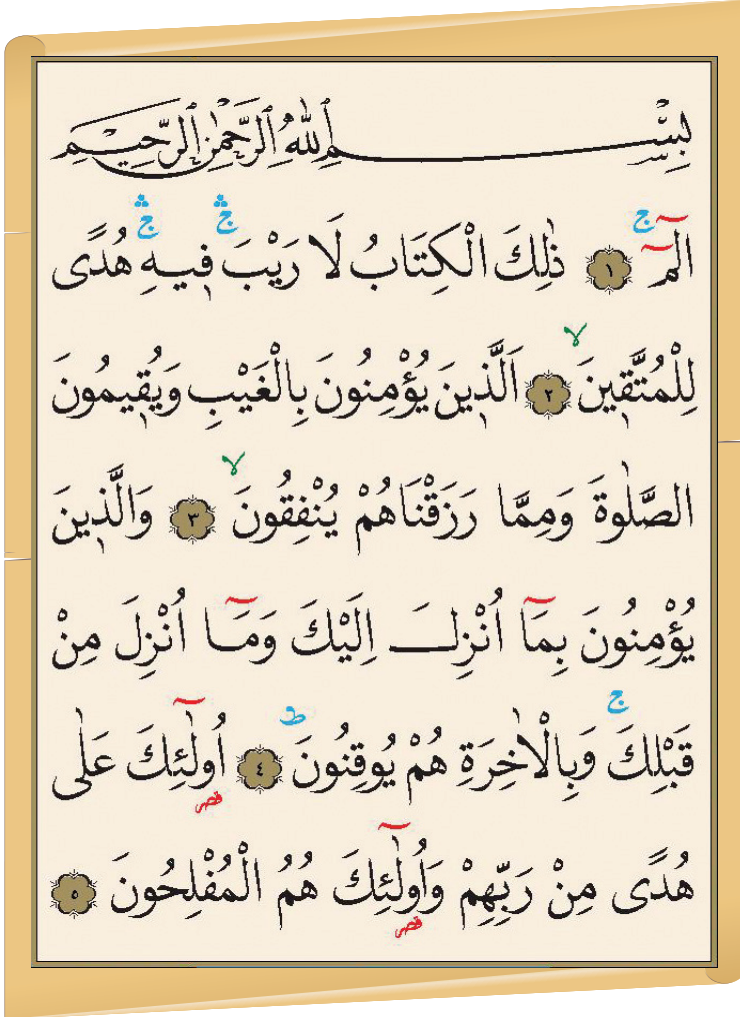 بِسْــــــمِ اللّٰهِ الرَّحْمٰنِ الرَّحِيـمِ
الٓمٓ ۚ ﴿١﴾ ذٰلِكَ الْكِتَابُ لَا رَيْبَ ۛ ف۪يهِ ۛ هُدًى
لِلْمُتَّق۪ينَ ۙ ﴿٢﴾ اَلَّذ۪ينَ يُؤْمِنُونَ بِالْغَيْبِ وَيُق۪يمُونَ
الصَّلٰوةَ وَمِمَّا رَزَقْنَاهُمْ يُنْفِقُونَ ۙ ﴿٣﴾ وَالَّذ۪ينَ
يُؤْمِنُونَ بِمَٓا اُنْزِلَ اِلَيْكَ وَمَٓا اُنْزِلَ مِنْ
قَبْلِكَ ۚ وَبِالْاٰخِرَةِ هُمْ يُوقِنُونَ ط ﴿٤﴾ اُو۬لٰٓئِكَ قصر عَلٰى
هُدًى مِنْ رَبِّهِمْ وَاُو۬لٰٓئِكَ قصر هُمُ الْمُفْلِحُونَ ﴿٥﴾